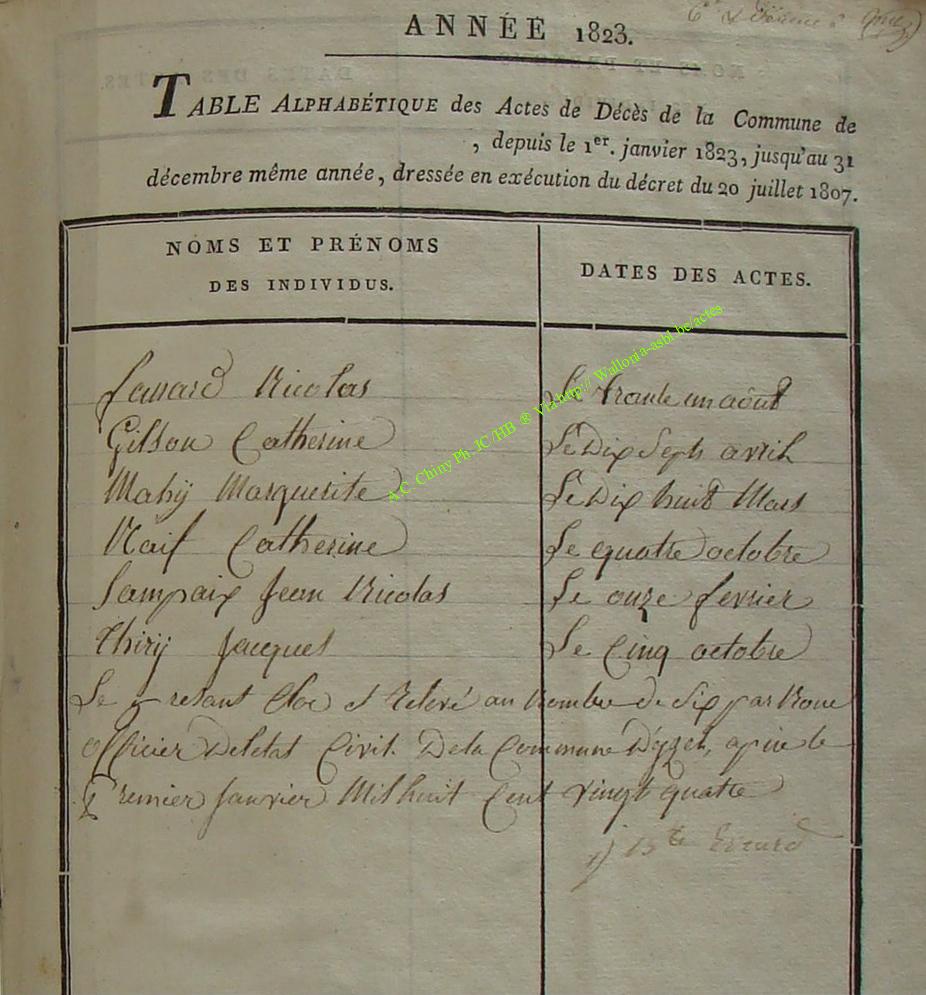 ANNÉE 1823.
TABLE ALPHABÉTIQUE des Actes de Décès de la Commune de
, depuis le 1er. janvier 1823, jusqu'au 31
décembre même année, dressée en exécution du décret du 20 juillet 1807.
NOMS ET PRÉNOMS
DES INDIVIDUS.
DATES DES ACTES.
Nicolas Le trante un août
Gilson Catherine Le Dix Sept avril
Mahÿ Marguerite Le Dix huit Mars
Naif Catherine Le quatre octobre
Sampaix Jean Nicolas Le onze fevrier
Thirÿ Jacques Le Cinq octobre
Le presant Clos et Relevé au Nombre de Six par Nous
officier Deletat Civil De la Commune D'yzel, le
Premier Janvier Mil huit Cent vingt quatre
Evrard
A.C Chiny Ph. JC/HB ® Via http:// Wallonia-asbl.be/actes